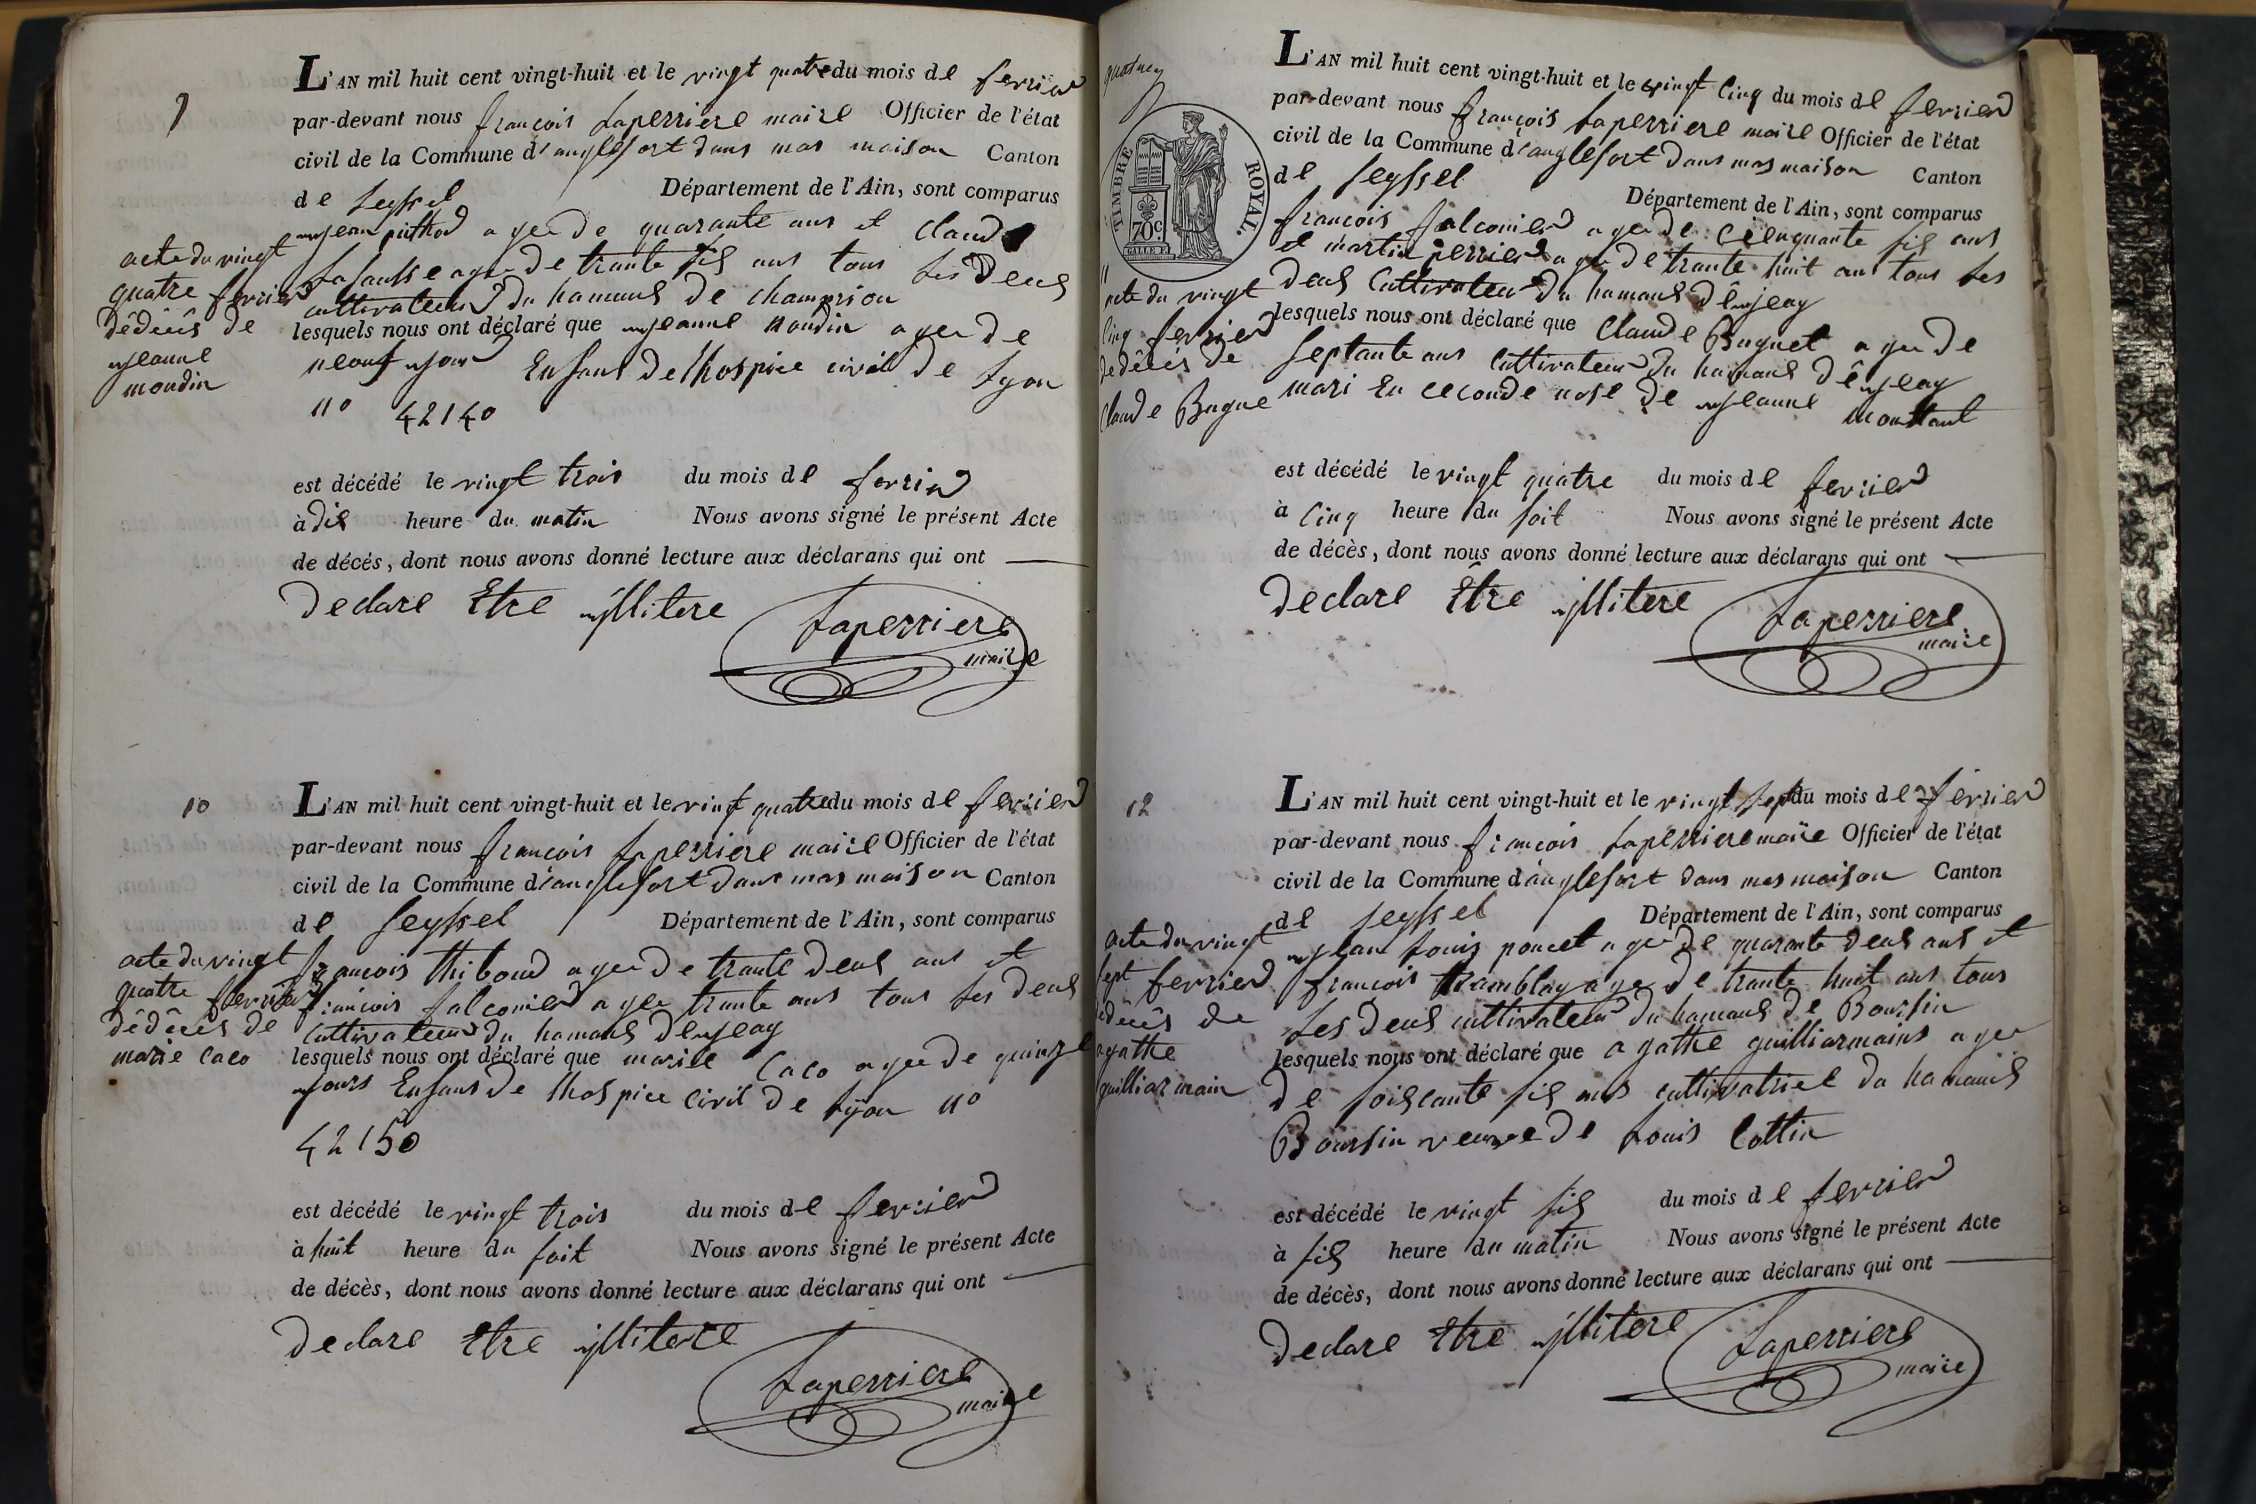 9
L'AN mil huit cent vingt-huit et le vingt quatre du mois de fevrier
par-devant nous françois Laperriere maire Officier de l'état
civil de la Commune d'anglefort dans mas maison Canton
de Seyssel Département de l'Ain, sont comparus
jean pithod agee de quarante ans et Claude
Lafausse agee de trante sis ans tous Les deus
cultivateur du hamaus de champrion
lesquels nous ont déclaré que jeanne moudin agee de
neouf jour Enfans de lhospice civil de Lyon
no 42140
acte du vingt
quatre fevrier
dêdécês de
jeanne
moudin
est décédé le vingt trois du mois de fevrier
à dis heure du matin Nous avons signé le présent Acte
de décés, dont nous avons donné lecture aux déclarans qui ont
declare Etre jllitere
Laperriere
maire
10
L'AN mil huit cent vingt-huit et le vingt quatre du mois de fevrier
par-devant nous françois Laperriere maire Officier de l'état
civil de la Commune d'anglefort dans mas maison Canton
de Seyssel Département de l'Ain, sont comparus
françois thiboud agee de trante deus ans et
françois falconier agee trante ans tous Les deus
cultivateur du hamaus denjeay
lesquels nous ont déclaré que marie Caco agee de quinze
jours Enfans de lhospice Civil de Lyon no
42150
acte du vingt
quatre fevrier
dêdécês de
marie Caco
est décédé le vingt trois du mois de fevrier
à huit heure du soit Nous avons signé le présent Acte
de décès, dont nous avons donné lecture aux déclarans qui ont
declare Etre jllitere
Laperriere
maire
TIMBRE ROYAL.
70c.
L'AN mil huit cent vingt-huit et le vingt Cinq du mois de fevrier
par-devant nous françois Laperriere maire Officier de l'état
civil de la Commune d'anglefort dans mas maison Canton
de Seyssel Département de l'Ain, sont comparus
françois falconier agee de cienquante sis ans
et martin perrier agee de trante huit an tous Les
deus Cultivateur du hamaus dênjeay
lesquels nous ont déclaré que Claude Buguet agee de
septante ans Cultivateur du hamaus dênjeay
mari En ceconde nose de jeanne Monttant
11
acte du vingt
Cinq fevrier
dedêcês de
Claude Bugue
est décédé le vingt quatre du mois de fevrier
à Cinq heure du soit Nous avons signé le présent Acte
de décès, dont nous avons donné lecture aux déclarans qui ont
declare Être jllitere
Laperriere
maire
12
L'AN mil huit cent vingt-huit et le vingt sept du mois de fevrier
par-devant nous françois Laperriere maire Officier de l'état
civil de la Commune d'anglefort dans mas maison Canton
de Seyssel Département de l'Ain, sont comparus
jean Louis poncet agee de quarante deus ans et
françois tramblay agee de trante huit ans tous
Les deus cultivateur du hamaus de Boursin
lesquels nous ont déclaré que agathe guilliarmains agee
de soiscante sis ans cultivatrice du hamaus
Boursin veuve de Louis Cottin
acte du vingt
sept fevrier
dedêcês de
agathe
guilliarmain
est décédé le vingt sis du mois de fevrier
à sis heure du matin Nous avons signé le présent Acte
de décès, dont nous avons donné lecture aux déclarans qui ont
declare Etre jllitere
Laperriere
maire